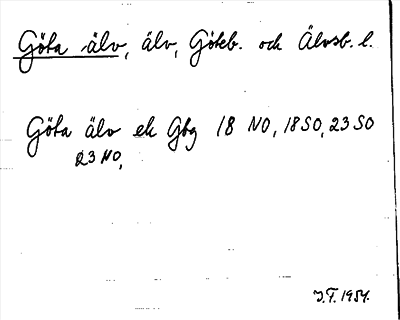 Göta älv, älv, Göteb. och Älvsb. l.
Göta älv ek Gbg 18 NO, 18 SO, 23 SO
23 NO,
J.F. 1954.